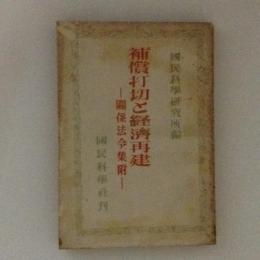 國民科學研究所編
補償打切と経済再建
―關係法令集附―
國民科學社刊